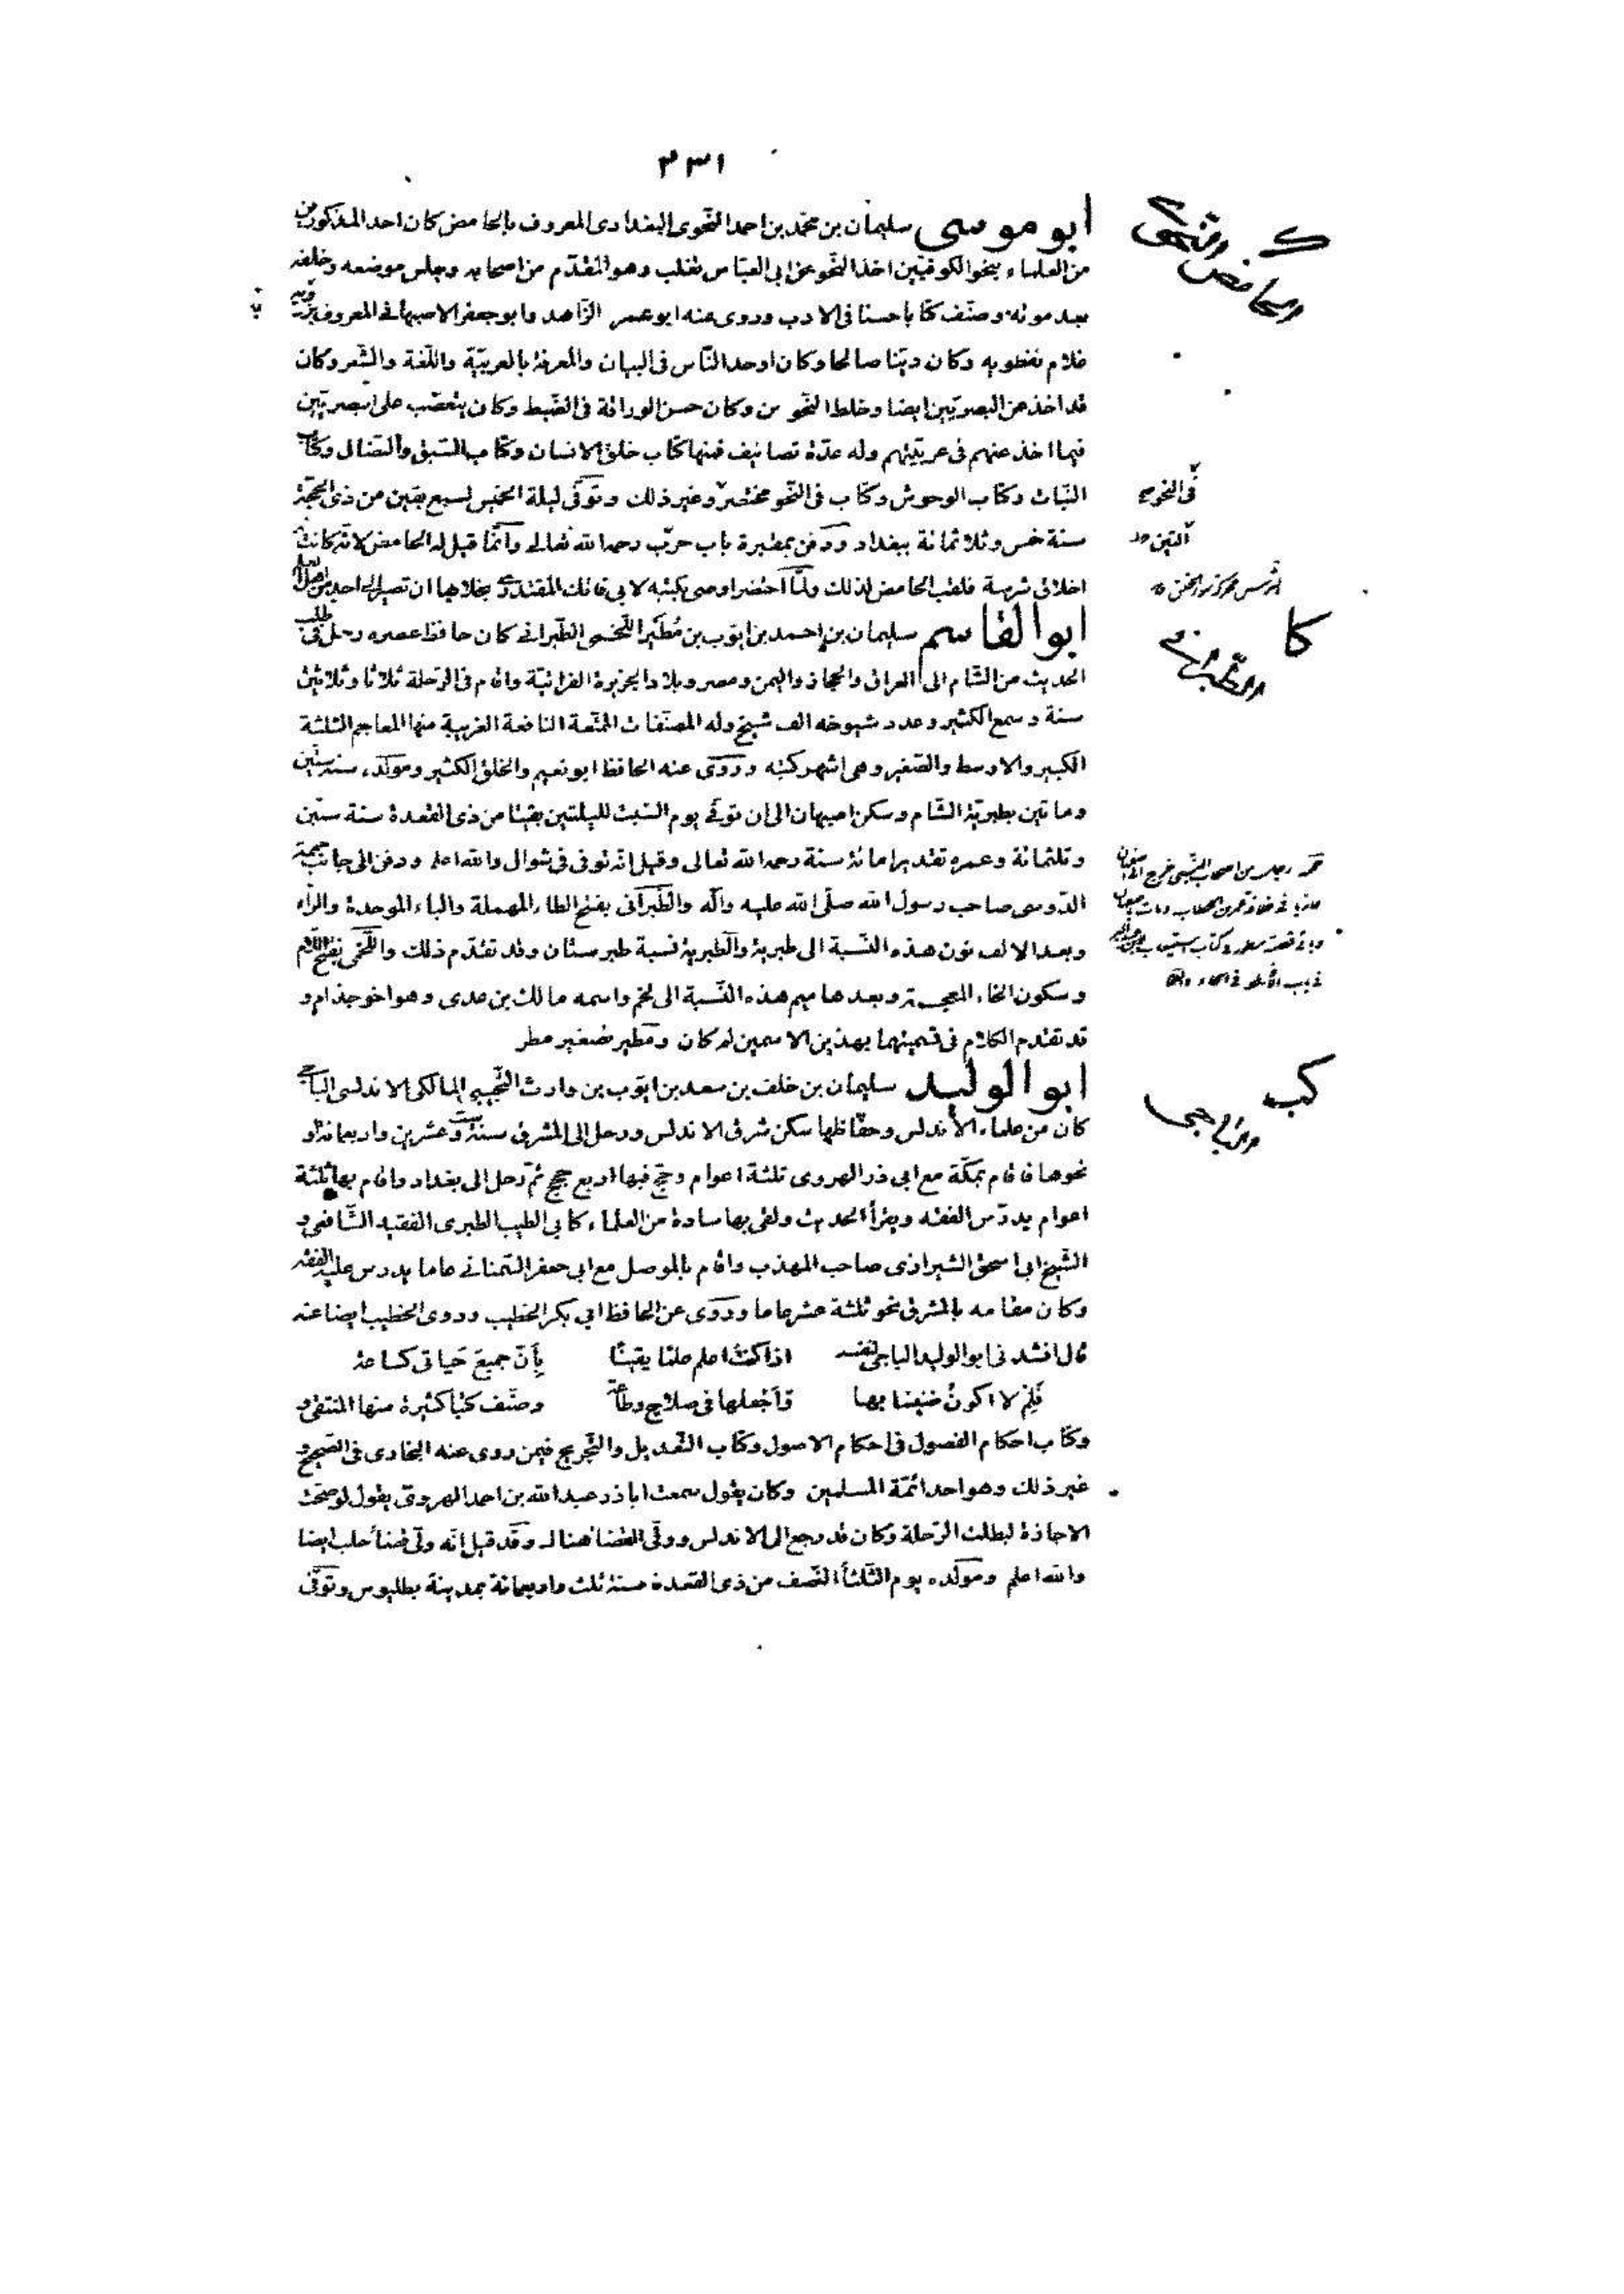 ٢٣١
ابو موسى سليمان بن محمّد بن احمد النّحوى البغدادى المعروف بالحامض كان احد المذكورين
من العلماء بنحو الكوفيّين اخذ النّحو عن ابى العبّاس ثعلب وهو المقدّم من اصحابه وجلس موضعه وخلفه
بعد موته وصنّف كتابا حسنا فى الادب وروى عنه ابو عمر الزّاهد وابو جعفر الاصبهانى المعروف ببرزويه
غلام نفطويه وكان ديّنا صالحا وكان اوحد النّاس فى البيان والمعرفة بالعربيّة واللّغة والشّعر وكان
قد اخذ عن البصريّين ايضا وخلط النّحوين وكان حسن الوراقة فى الضّبط وكان يتعصّب على البصريّين
فيما اخذ عنهم فى عربيّتهم وله عدّة تصانيف فمنها كتاب خلق الانسان وكتاب السّبق والنّضال وكتاب
النّبات وكتاب الوحوش وكتاب فى النّحو مختصر وغير ذلك وتوفّى ليلة الخميس لسبع بقين من ذى الحجّة
سنة خمس وثلاثمائة ببغداد ودفن بمقبرة باب حرب رحمه الله تعالى وانّما قيل له الحامض لانّه كانت له
اخلاق شرسة فلقّب الحامض لذلك ولمّا احتضر اوصى بكتبه لابى فاتك المقتدرى بخلا بها ان تصير الى احد من اهل العلم
ابو القاسم سليمان بن احمد بن ايّوب بن مُطَيْر اللّخمى الطّبرانى كان حافظ عصره رحل فى طلب
الحديث من الشّام الى العراق والحجاز واليمن ومصر وبلاد الجزيرة الفراتيّة واقام فى الرّحلة ثلاثا وثلاثين
سنة وسمع الكثير وعدد شيوخه الف شيخ وله المصنّفات الممتّعة النافعة الغريبة منها المعاجم الثلثة
الكبير والاوسط والصّغير وهى اشهر كتبه وروى عنه الحافظ ابو نعيم والخلق الكثير ومولده سنة ستّين
ومائتين بطبريّة الشّام وسكن اصبهان الى ان توفّى يوم السّبت لليلتين بقيتا من ذى القعدة سنة ستّين
وثلثمائة وعمره تقديرا مائة سنة رحمه الله تعالى وقيل انّه توفى فى شوال والله اعلم ودفن الى جانب حممة
الدّوسى صاحب رسول الله صلّى الله عليه وآله والطّبرانى بفتح الطاء المهملة والباء الموحدة والرّاء
وبعد الالف نون هذه النّسبة الى طبرية والطبرية نسبة طبرستان وقد تقدّم ذلك واللّخمى بفتح اللّام
وسكون الخاء المعجمة وبعدها ميم هذه النّسبة الى لخم واسمه مالك بن عدى وهو اخو جذام و
قد تقدم الكلام فى تسميتهما بهذين الاسمين لم كان ومطير تصغير مطر
ابو الوليد سليمان بن خلف بن سعد بن ايّوب بن وارث التّجيبى المالكى الاندلسى الباجى
كان من علماء الأندلس وحفّاظها سكن شرقى الاندلس ورحل الى المشرق سنة ستّ وعشرين واربعمائة او
نحوها فاقام بمكّة مع ابى ذر الهروى ثلثة اعوام وحجّ فيها اربع حجج ثمّ رحل الى بغداد واقام بها ثلثة
اعوام يدرّس الفقه ويقرأ الحديث ولقى بها سادة من العلماء كابى الطيب الطبرى الفقيه الشّافعى و
الشّيخ ابى اسحق الشيرازى صاحب المهذب واقام بالموصل مع ابى جعفر السّمنانى عاما يدرس عليه الفقه
وكان مقامه بالمشرق نحو ثلثة عشر عاما وروى عن الحافظ ابى بكر الخطيب وروى الخطيب ايضا عنه
قال انشدنى ابو الوليد الباجى لنفسه اذا كنتُ اعلم علما يقينًا بأنّ جميعَ حَياتى كساعة
فَلِمْ لا اكونُ ضنينا بها وَاَجْعلها فى صلاحٍ وطاعة وصنّف كتبا كثيرة منها المنتقى و
وكتاب احكام الفصول فى احكام الاصول وكتاب التّعديل والتّجريح فيمن روى عنه البخارى فى الصّحيح و
غير ذلك وهو احد ائمّة المسلمين وكان يقول سمعت ابا ذر عبد الله بن احمد الهروىّ يقول لو صحّت
الاجازة لبطلت الرّحلة وكان قد رجع الى الاندلس وولّى القضاء هناك وقد قيل انّه ولّى قضاء حلب ايضا
والله اعلم ومولده يوم الثّلثاء النّصف من ذى القعدة سنة ثلث واربعمائة بمدينة بطليوس وتوفّى
والحامض
فى النحو
كا
والطبرانى
كب
والباجى